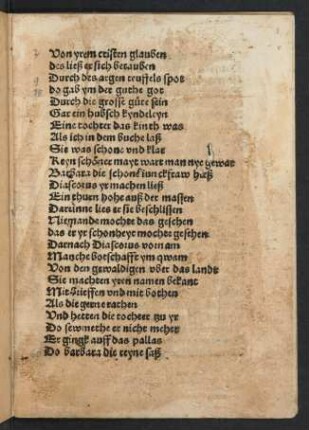 Von yrem cristen glauben
des ließ er sich berauben
Durch des argen teuffels spot
do gab ym der guthe got
Durch die grosse güte sein
Gar ein hubsch kyndeleyn
Eine tochter das kinth was
Als ich in dem buche laß
Sie was schone vnd klar
Keyn schöner mayt wart man nye gewar
Barbara die schone iunckfraw hieß
Diascorus yr machen ließ
Ein thuen hohe auß der massen
Darinne ließ er sie beschlissen
Niemande mochte das geschen
das er yr schonheyt mochte geschen
Darnach Diascorus vornam
Manche botschafft ym qwam
Von den gewaldigen vber das landt
Sie machten yren namen bekant
Mit brieffen vnd mit bothen
Als die gerne rathen
Vnd hetten die tochter zu yr
Do sewmethe er nicht meher
Er gingk auff das pallas
Do barbara die reyne saß